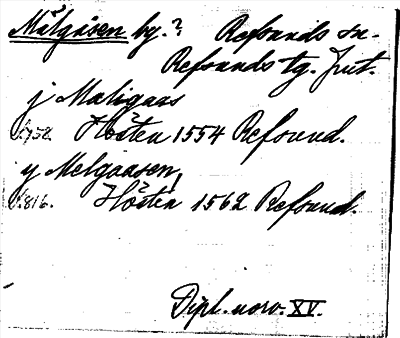 Målgåsen by.? Refsunds sn.
Refsunds tg. Jmt.
j Maligaas
s. 752. Hösten 1554 Refsund.
y Melgaasen,
s. 816. Hösten 1562 Refsund.
Dipl. norv. XV.